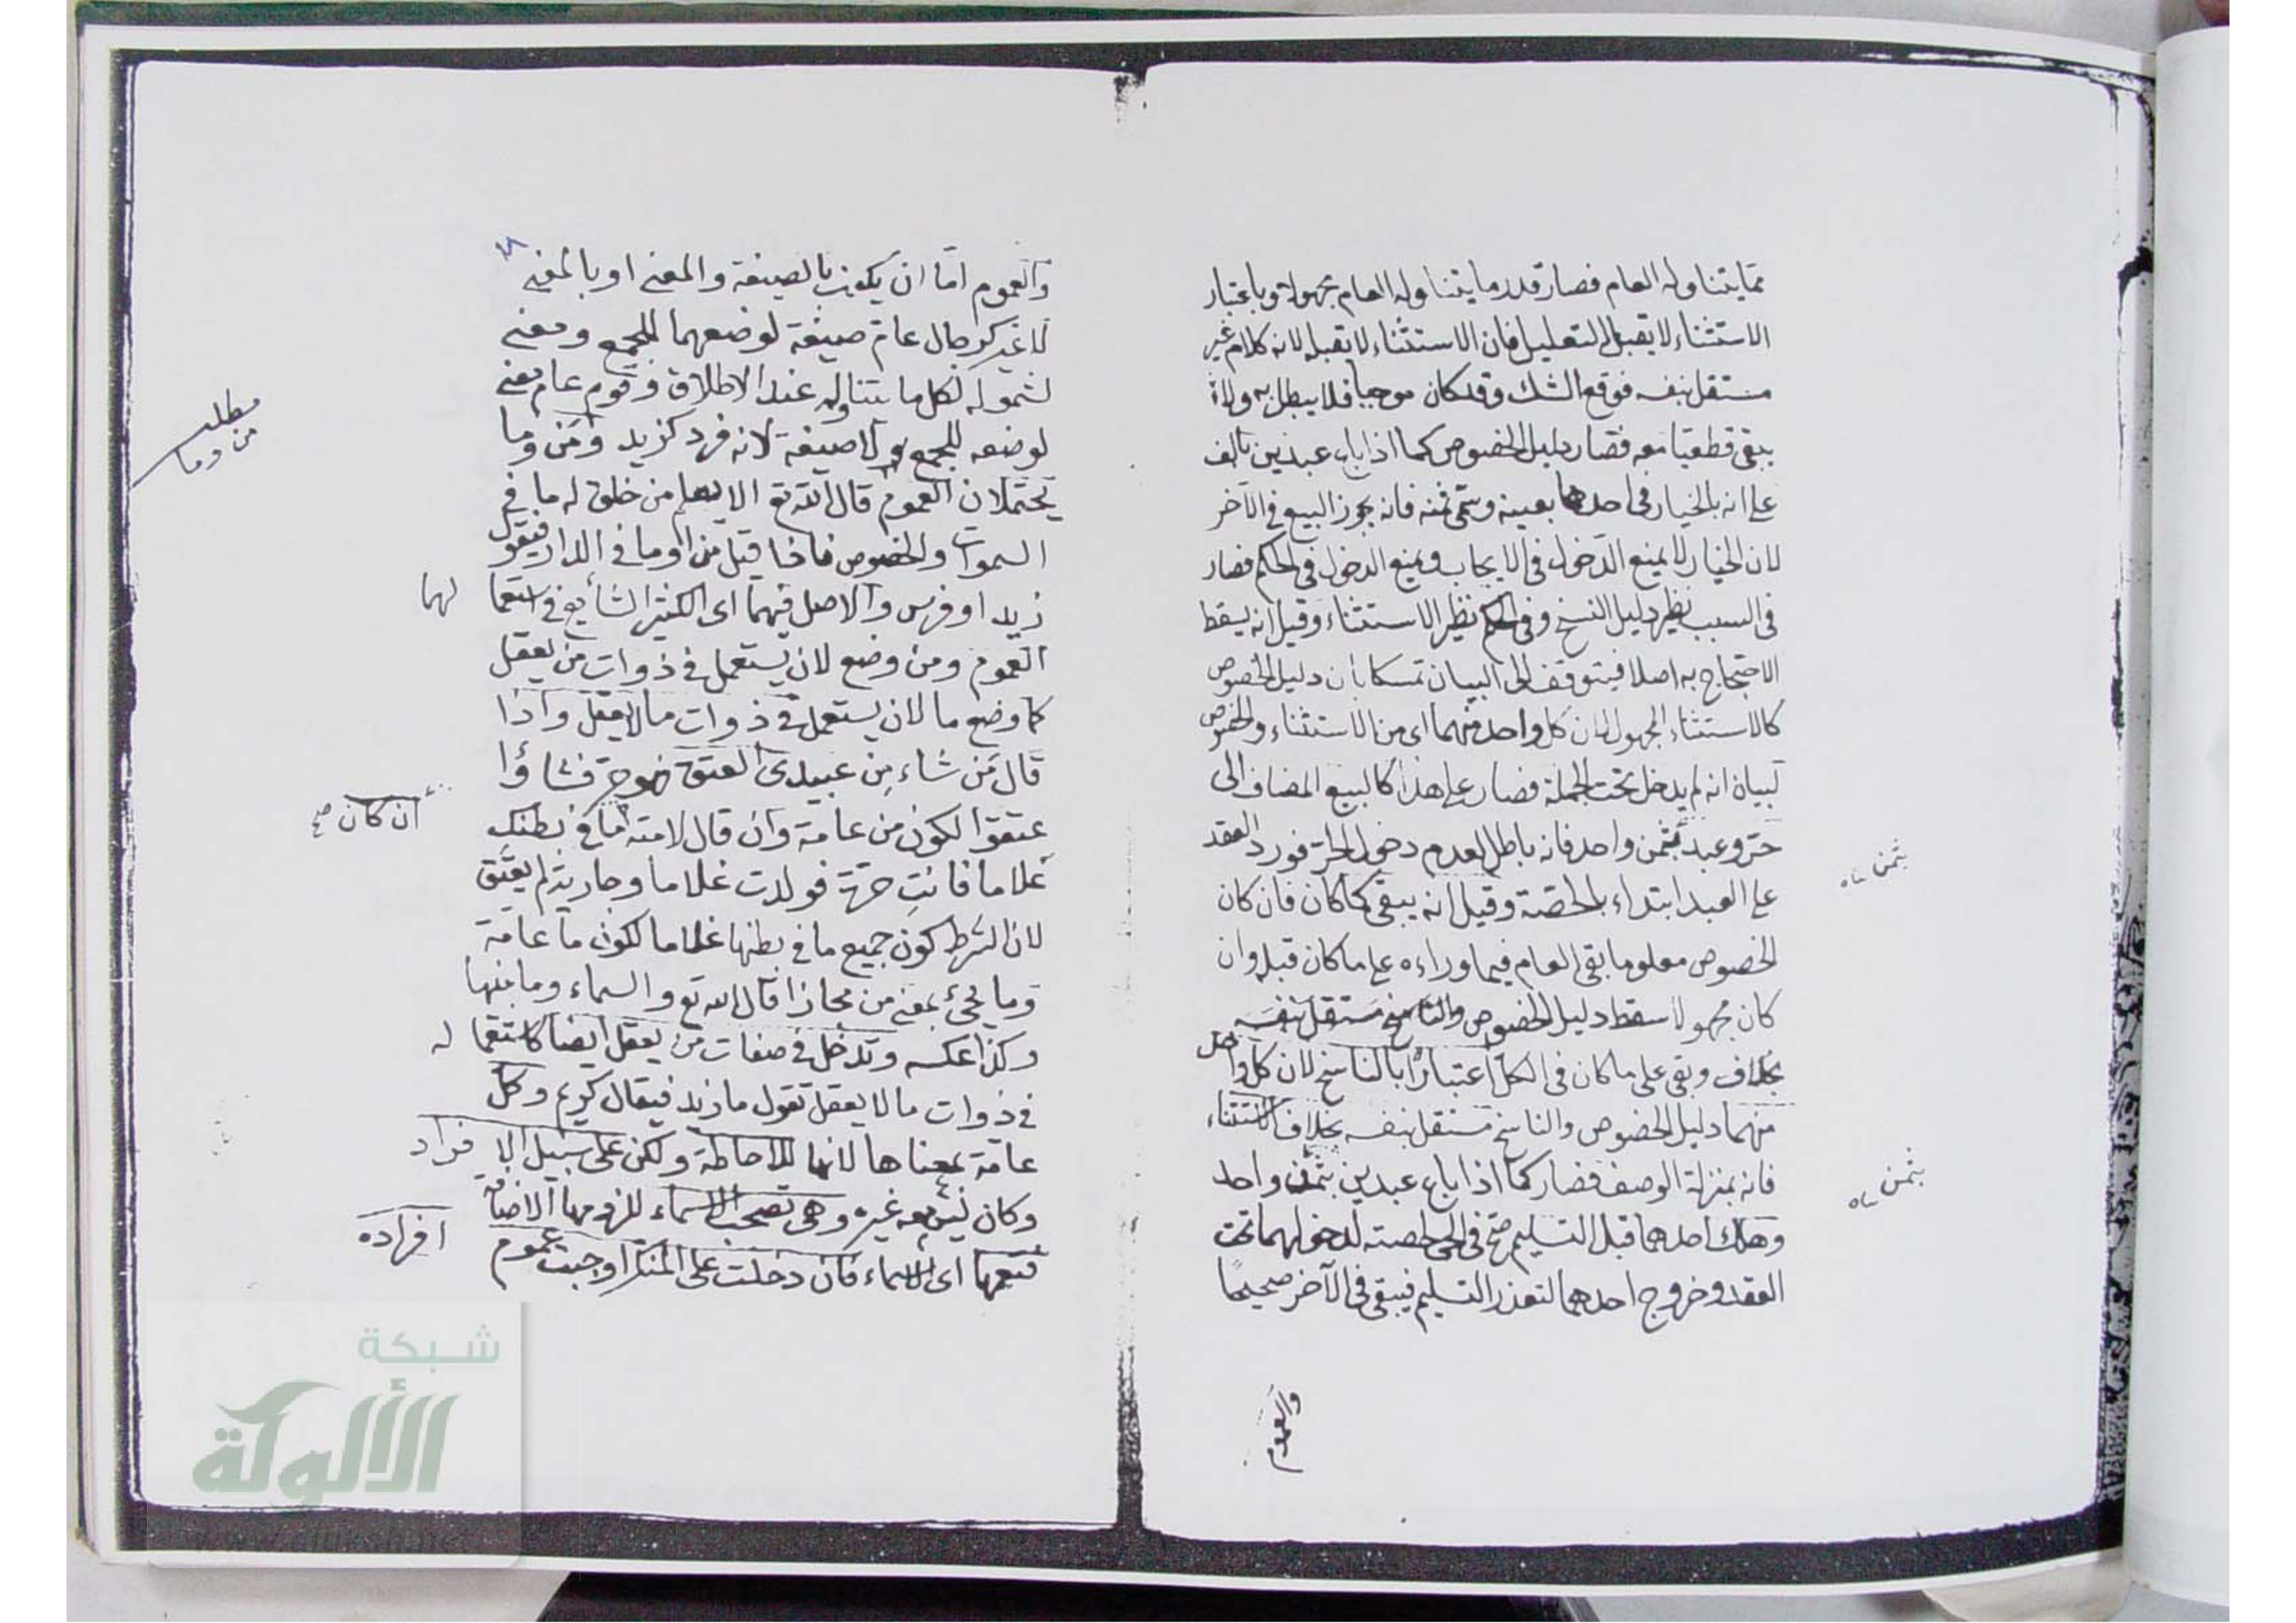 مما يتناوله العام فصار قدر ما يتناوله العام مجهولا وباعتبار
الاستثناء لا يقبل التعليل فان الاستثناء لا يقبله لانه كلام غير
مستقل بنفسه فوقع الشك وقد كان موجبا فلا يبطل به ولا
يبقى قطعيا معه فصار دليل الخصوص كما اذا باع عبدين بالف
على انه بالخيار فى احدهما بعينه وسمى ثمنه فانه يجوز البيع فى الآخر
لان الخيار لا يمنع الدخول فى الايجاب ويمنع الدخول فى الحكم فصار
فى السبب نظير دليل النسخ وفى الحكم نظير الاستثناء وقيل انه يسقط
الاحتجاج به اصلا فيتوقف الى البيان تمسكا بأن دليل الخصوص
كالاستثناء المجهول لان كل واحد منهما اى من الاستثناء والخصوص
لبيان انه لم يدخل تحت الجملة فصار على هذا كالبيع المضاف الى
حر وعبد بثمن واحد فانه باطل لعدم دخول الحر فورد العقد
بثمن
على العبد ابتداء بالحصة وقيل انه يبقى كما كان فان كان
الخصوص معلوما بقى العام فيما وراءه على ما كان قبله وان
كان مجهولا سقط دليل الخصوص والناسخ مستقل بنفسه
بخلاف وبقى على ما كان فى الكل اعتبارا بالناسخ لان كل واحد
منهما دليل الخصوص والناسخ مستقل بنفسه بخلاف الاستثناء
فانه بمنزلة الوصف فصار كما اذا باع عبدين بثمن واحد
بثمن
وهلك احدهما قبل التسليم صح فى الحى لحصته لدخولهما تحت
العقد وخروج احدهما لتعذر التسليم فيبقى فى الآخر صحيحا
والعموم
والعموم اما ان يكون بالصيغة والمعنى او بالمعنى
لا غير كرجال عام صيغة لوضعهما للجمع ومعنى
لشموله لكل ما يتناوله عند الاطلاق وقوم عام بمعنى
مطلب
من وما
لوضعه للجمع لا صيغة لانه فرد كزيد ومن وما
يحتملان العموم قال الله تع الا يعلم من خلق له ما فى
السموات والخصوص فاذا قيل من او ما فى الدار فيقول
زيد او فرس والاصل فيهما اى الكثير الشايع فى استعما لهما
العموم ومن وضع لان يستعمل فى ذوات من يعقل
كما وضع ما لان يستعمل فى ذوات ما لا يعقل واذا
قال من شاء من عبيدى العتق فهو حر فشاؤا
عتقوا لكون من عامة وان قال لامته ما فى بطنك
ان كان صح
غلاما فانت حرة فولدت غلاما وجارية لم يعتق
لان الشرط كون جميع ما فى بطنها غلاما لكون ما عامة
وما يجئ بمعنى من مجازا قال الله تع والسماء وما بنيها
وكذا عكسه وتدخل فى صفات من يعقل ايضا كاستعما له
فى ذوات ما لا يعقل تقول ما زيد فيقال كريم وكل
عامة بمعناها لانها للاحاطة ولكن على سبيل الا فراد
وكان ليس معه غيره وهى تصحب الاسماء للزومها الاضافة
فتعمها اى الاسماء فان دخلت على المنكر اوجبت عموم افراده
شبكة
الألوكة